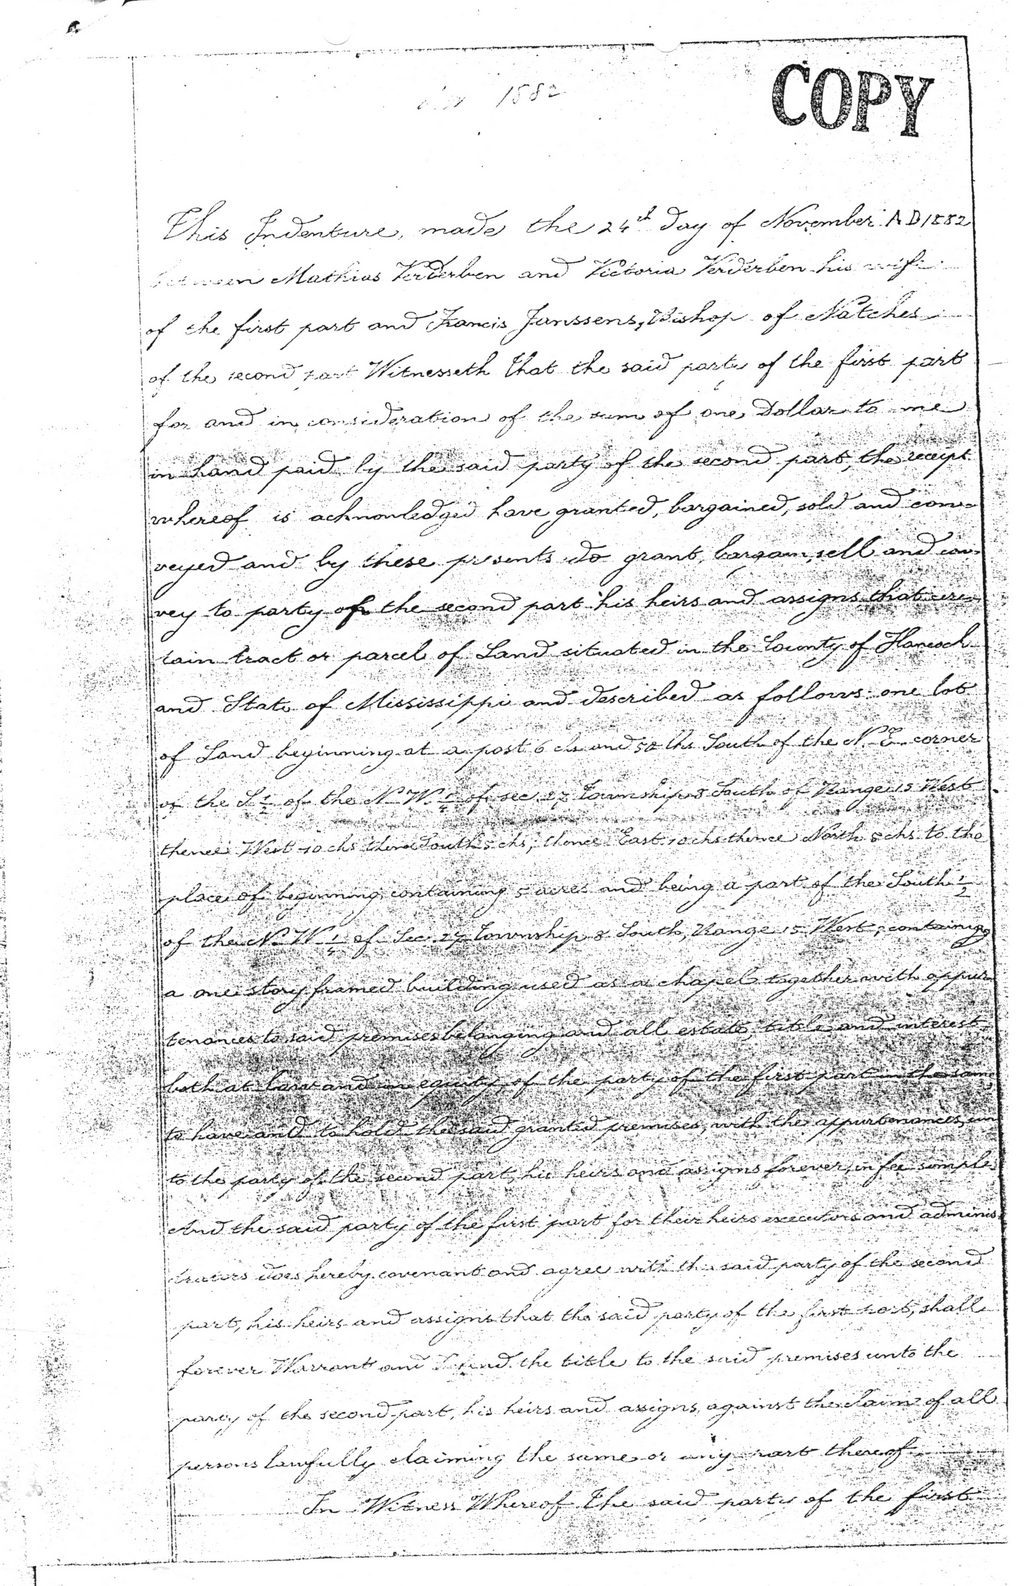 1882
COPY
This Indenture, made the 24th day of November A D 1882
between Mathias Verderben and Victoria Verderben his wife
of the first part and Francis Janssens, Bishop of Natches
of the second part Witnesseth that the said party of the first part
for and in consideration of the sum of one Dollar to me
in hand paid by the said party of the second part, the receipt
whereof is acknowledged have granted, bargained, sold and con-
veyed and by these presents do grant, bargain, sell and con-
vey to party of the second part his heirs and assigns that cer-
tain tract or parcel of Land situated in the County of Hancock
and State of Mississippi and described as follows: one lot
of Land beginning at a post 6 chs and 54 lks South of the N. E. corner
of the S ½ of the N. W. ¼ of sec 27 Township 8 South of Range 15 West
thence West 10 chs thence South 5 chs; thence East 10 chs thence North 5 chs to the
place of beginning containing 5 acres and being a part of the South ½
of the N. W. ¼ of Sec 27 Township 8 South, Range 15 West, containing
a one story framed building used as a chapel together with appur-
tenances to said premises belonging and all estate, title and interest
both at Law and in equity of the party of the first part in the same
to have and to hold the said granted premises, with the appurtenances un
to the party of the second part, his heirs and assigns forever, in fee simple
And the said party of the first part for their heirs executors and adminis-
trators does hereby covenant and agree with the said party of the second
part, his heirs and assigns that the said party of the first part, shall
forever Warrant and Defend the title to the said premises unto the
party of the second part, his heirs and assigns, against the claim of all
persons lawfully claiming the same or any part thereof
In Witness Whereof The said party of the first